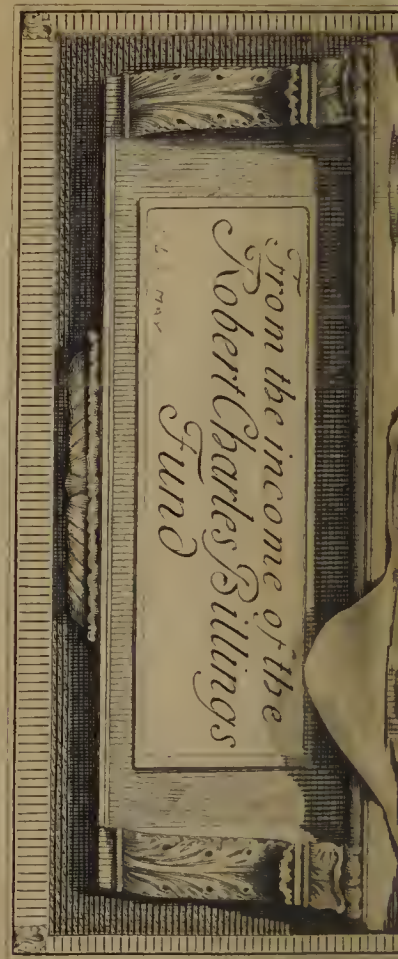 From the income of the
Robert Charles Billings
Fund